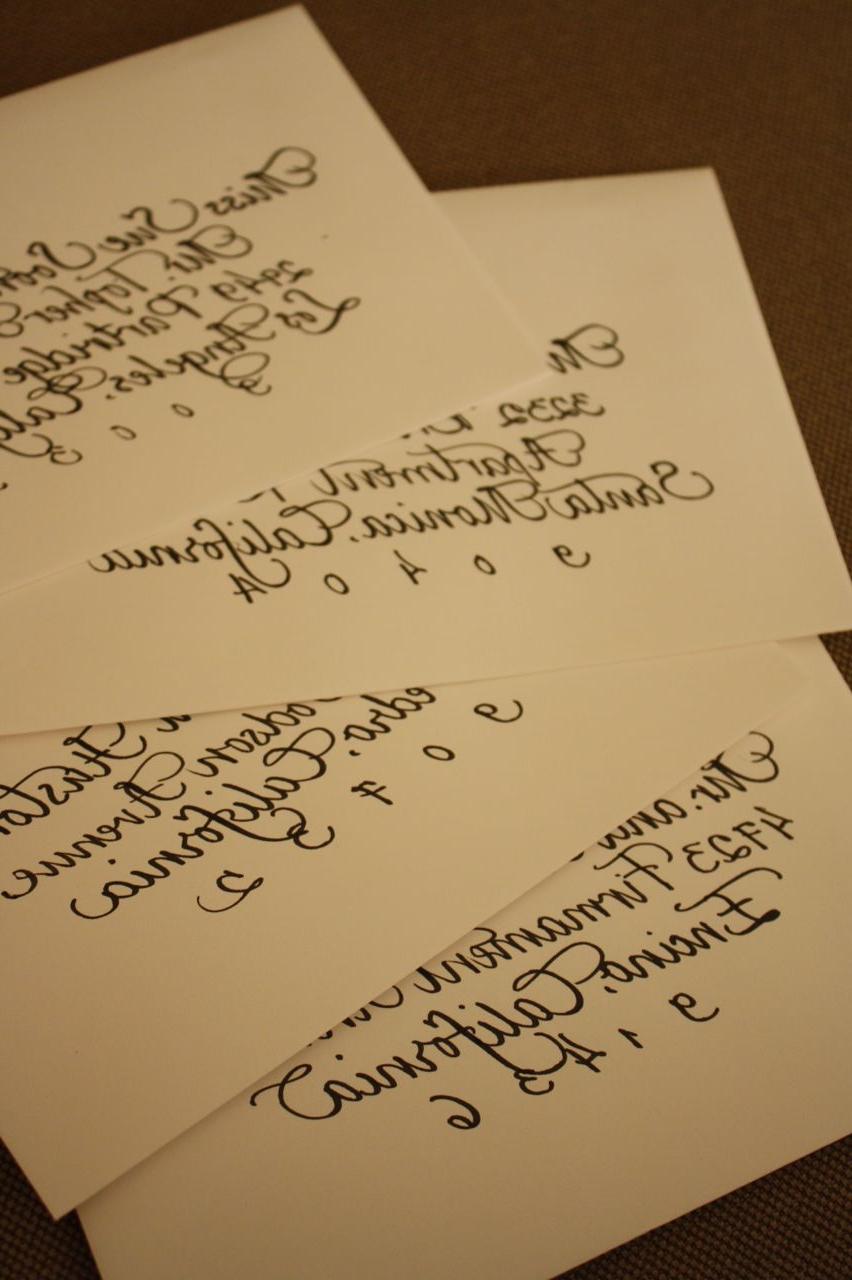 Miss Sue
Mr. Topher
2949 Partridge
Los Angeles, Cali
9 0 0 3
3232
Apartment
Santa Monica, California
9 0 4 0 4
Avenue
California
9 0 7 3 2
Mr. and
4723 Firmament
Encino, California
9 1 4 3 6